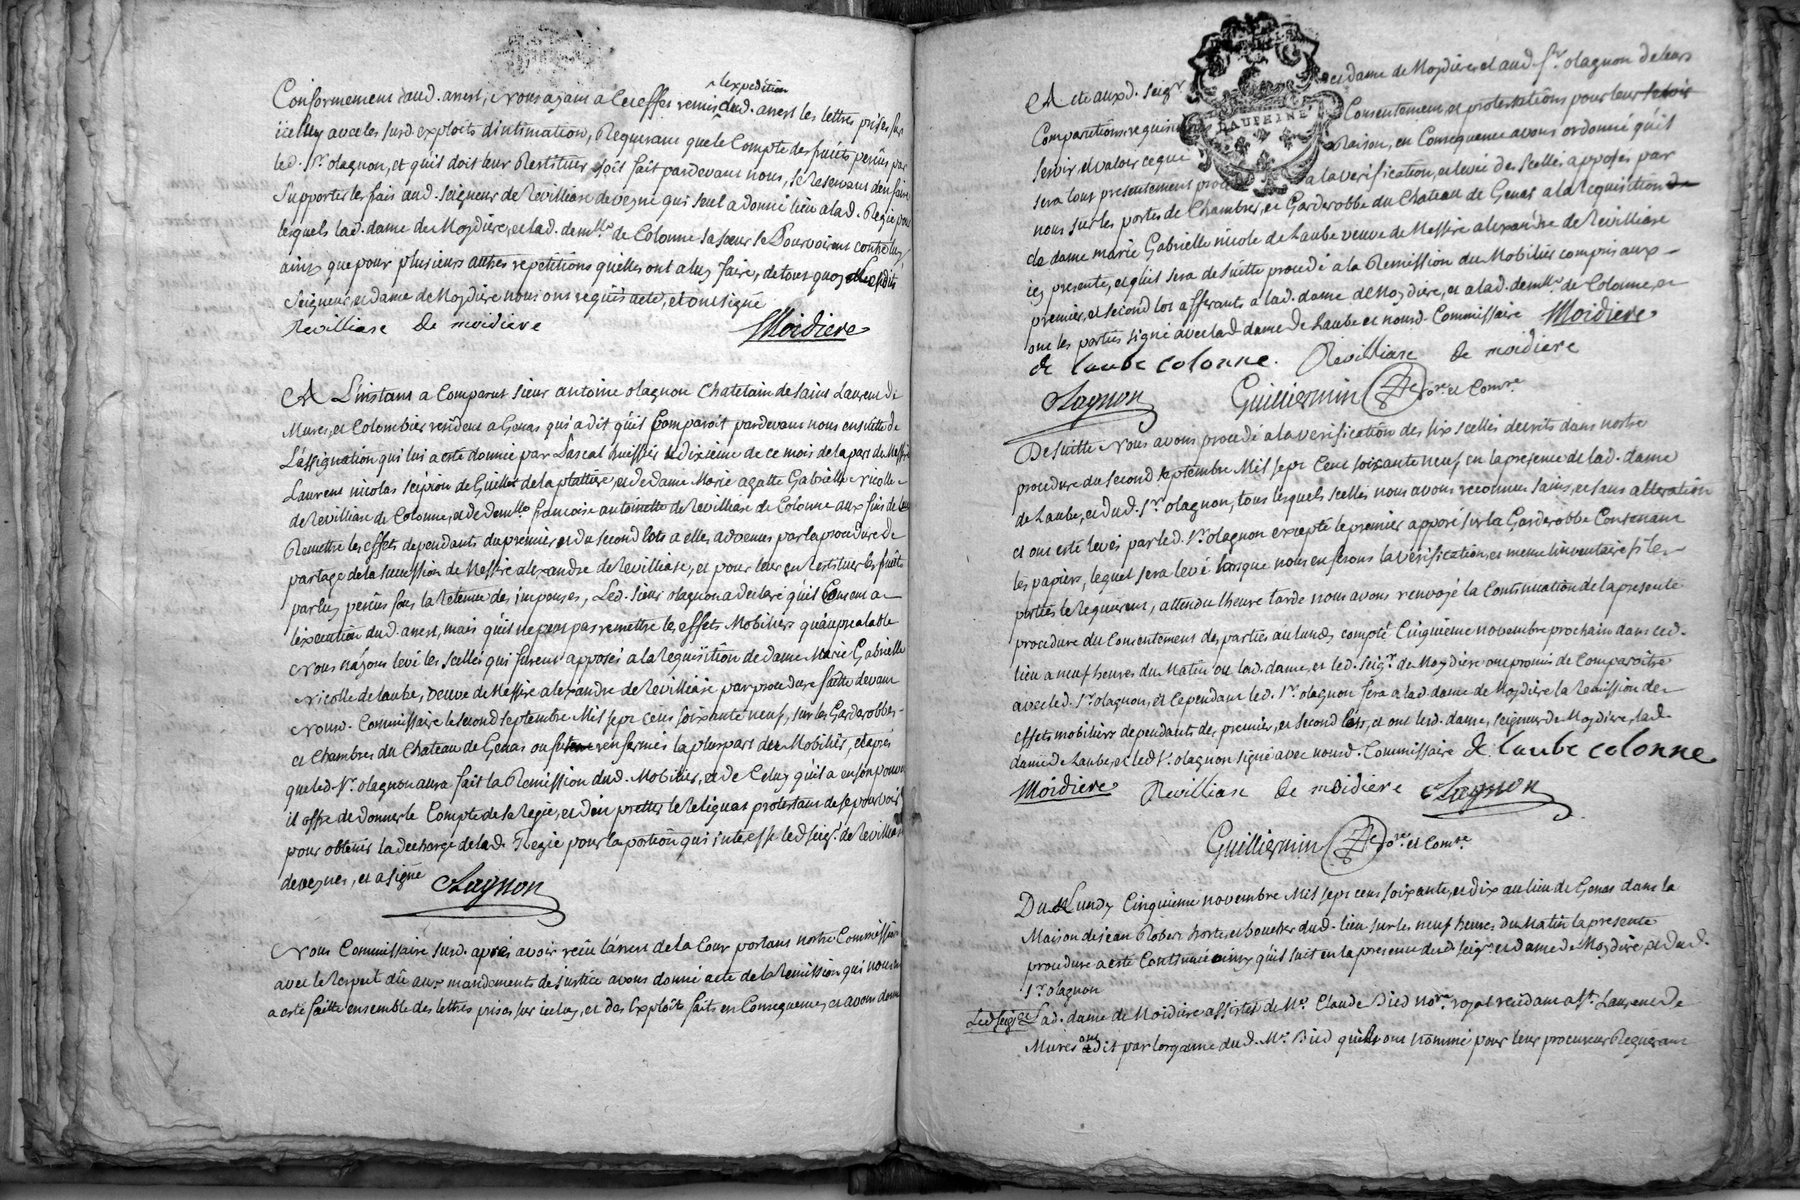 l'expedition
Conformement aud. arrest, Nous ayant a cet effet remis dud. arrest les lettres prises sur
icelluy avec les susd. exploits d'intimation, Requerant que le Compte des fruits perçûs par
led. Sr. olagnon, et qu'il doit leur Restituer soit fait pardevant nous, se Reservant d'en faire
Supporter les frais aud. seigneur de Revilliase de veyne qui seul a donné lieu a lad. Regie pour
lesquels lad. dame de Moydiere, et lad. demlle. de Colonne sa sœur se Pourvoiront contre luy
ainsy que pour plusieurs autres repetitions qu'elles ont a luy faire, de tout quoy lesdits
Seigneur, et dame de Moydiere nous ont requis acte, et ont signé
Revilliase de moidiere Moidiere
A L'instant a Comparut sieur antoine olagnon Chatelain de saint Laurent de
Mures, et Colombier resident a Genas qui a dit qu'il Comparoit pardevant nous en suitte de
L'assignation qui lui a esté donnée par Pascal le dixieme de ce mois de la part de Messire
Laurent nicolas scipion de Guillet de la plattiere, et de dame Marie agatte Gabrielle nicolle
de Revilliase de Colonne, et de demlle. francoise antoinette de Revilliase de Colonne aux fins de leur
Remettre les effets dependants du premier, et du second lots a elles advenus par la procedure de
partage de la succession de Messire alexandre de Revilliase, et pour leur en Restituer les fruits
par luy perçûs sous la Retenue des imposes, Led. sieur olagnon a declaré qu'il Consent a
l'execution dud. arrest, mais qu'il ne peut pas remettre les effets Mobiliers qu'au prealable
Nous n'ayons levé les scellés qui furent apposés a la Requisition de dame Marie Gabrielle
Nicolle de laube, veuve de Messire alexandre de Revilliase par procedure faitte devant
Nousd. Commissaire le second septembre Mil sept cent soixante neuf, sur les Garderobbes
et Chambres du Chateau de Genas ou furent renfermés la pluspart des Mobiliers, et apres
que led. Sr. olagnon aura fait la Remission dud. Mobilier, et de Celuy qu'il a en son pouvoir
il offre de donner le Compte de sa Regie, et d'en pretter le Reliquat protestant de se pourvoir
pour obtenir la decharge de lad. Regie pour la portion qui interesse led. seigr. de Revilliase
de veynes, et a signé Olagnon
Nous Commissaire susd. apres avoir reçu l'arrest de la Cour portant nostre Commission
avec le Respect dû aux mandements de justice avons donné acte de la Remission qui nous en
a esté faitte ensemble des lettres prises sur icelluy, et des Exploits faits en Consequence, et avons donné
Acte auxd. Seigr. et dame de Moydiere, et aud. Sr. olagnon de leurs
DAUPHINE
Comparutions requisitions Consentement, et protestations pour leur
servir, et valoir ce que Raison, en Consequence avons ordonné qu'il
sera tout presentement procedé a la verification, et levée des scellés apposés par
nous sur les portes de Chambres, et Garderobbe du Chateau de Genas a la Requisition
de dame marie Gabrielle nicole de Laube veuve de Messire alexandre de Revilliase
icy presente, et qu'il sera de suitte procedé a la Remission du Mobilier compris aux
premier, et second lot afferants a lad. dame de Moydiere, et a lad. demlle. de Colonne, et
ont les parties signé avec lad. dame de Laube et nousd. Commissaire Moidiere
de laube colonne. Revilliase de moidiere
Olagnon Guilliermin
De suitte Nous avons procedé a la verification des six scellés decrits dans nostre
procedure du second septembre Mil sept Cent soixante neuf en la presence de lad. dame
de Laube, et dud. Sr. olagnon, tous lesquels scellés nous avons reconnus sains, et sans alteration
et ont esté levés par led. Sr. olagnon excepté le premier apposé sur la Garderobbe Contenant
les papiers, lequel sera levé lorsque nous en ferons la verification, et meme l'inventaire si les
parties le Requierent, attendu l'heure tarde nous avons renvoyé la Continuation de la presente
procedure du Consentement des parties au lundy compté Cinquieme novembre prochain dans led.
lieu a neuf heures du Matin ou lad. dame, et led. Seigr. de Moydiere ont promis de Comparoitre
avec led. Sr. olagnon, et Cependant led. Sr. olagnon fera a lad. dame de Moydiere la Remission des
effets mobiliers dependants des premier, et second lots, et ont lesd. dame, seigneur de Moydiere, lad.
dame de Laube, et led. Sr. olagnon signé avec nousd. Commissaire de laube colonne
Moidiere Revilliase de moidiere Olagnon
Guilliermin
Du Lundy Cinquieme novembre Mil sept cent soixante, et dix au lieu de Genas dans la
Maison de jean Robert hoste et boucher dud. lieu sur les neuf heures du Matin la presente
procedure a esté Continuée ainsy qu'il suit en la presence dud. seigr. et dame de Moydiere, et dud.
Sr. olagnon
Led. seigr. et Lad. dame de Moidiere assistés de Me. Claude Bied nore. royal residant a St. Laurent de
Mures ont dit par l'organe dud. Me. Bied qu'ils ont nommé pour leur procureur Requerant